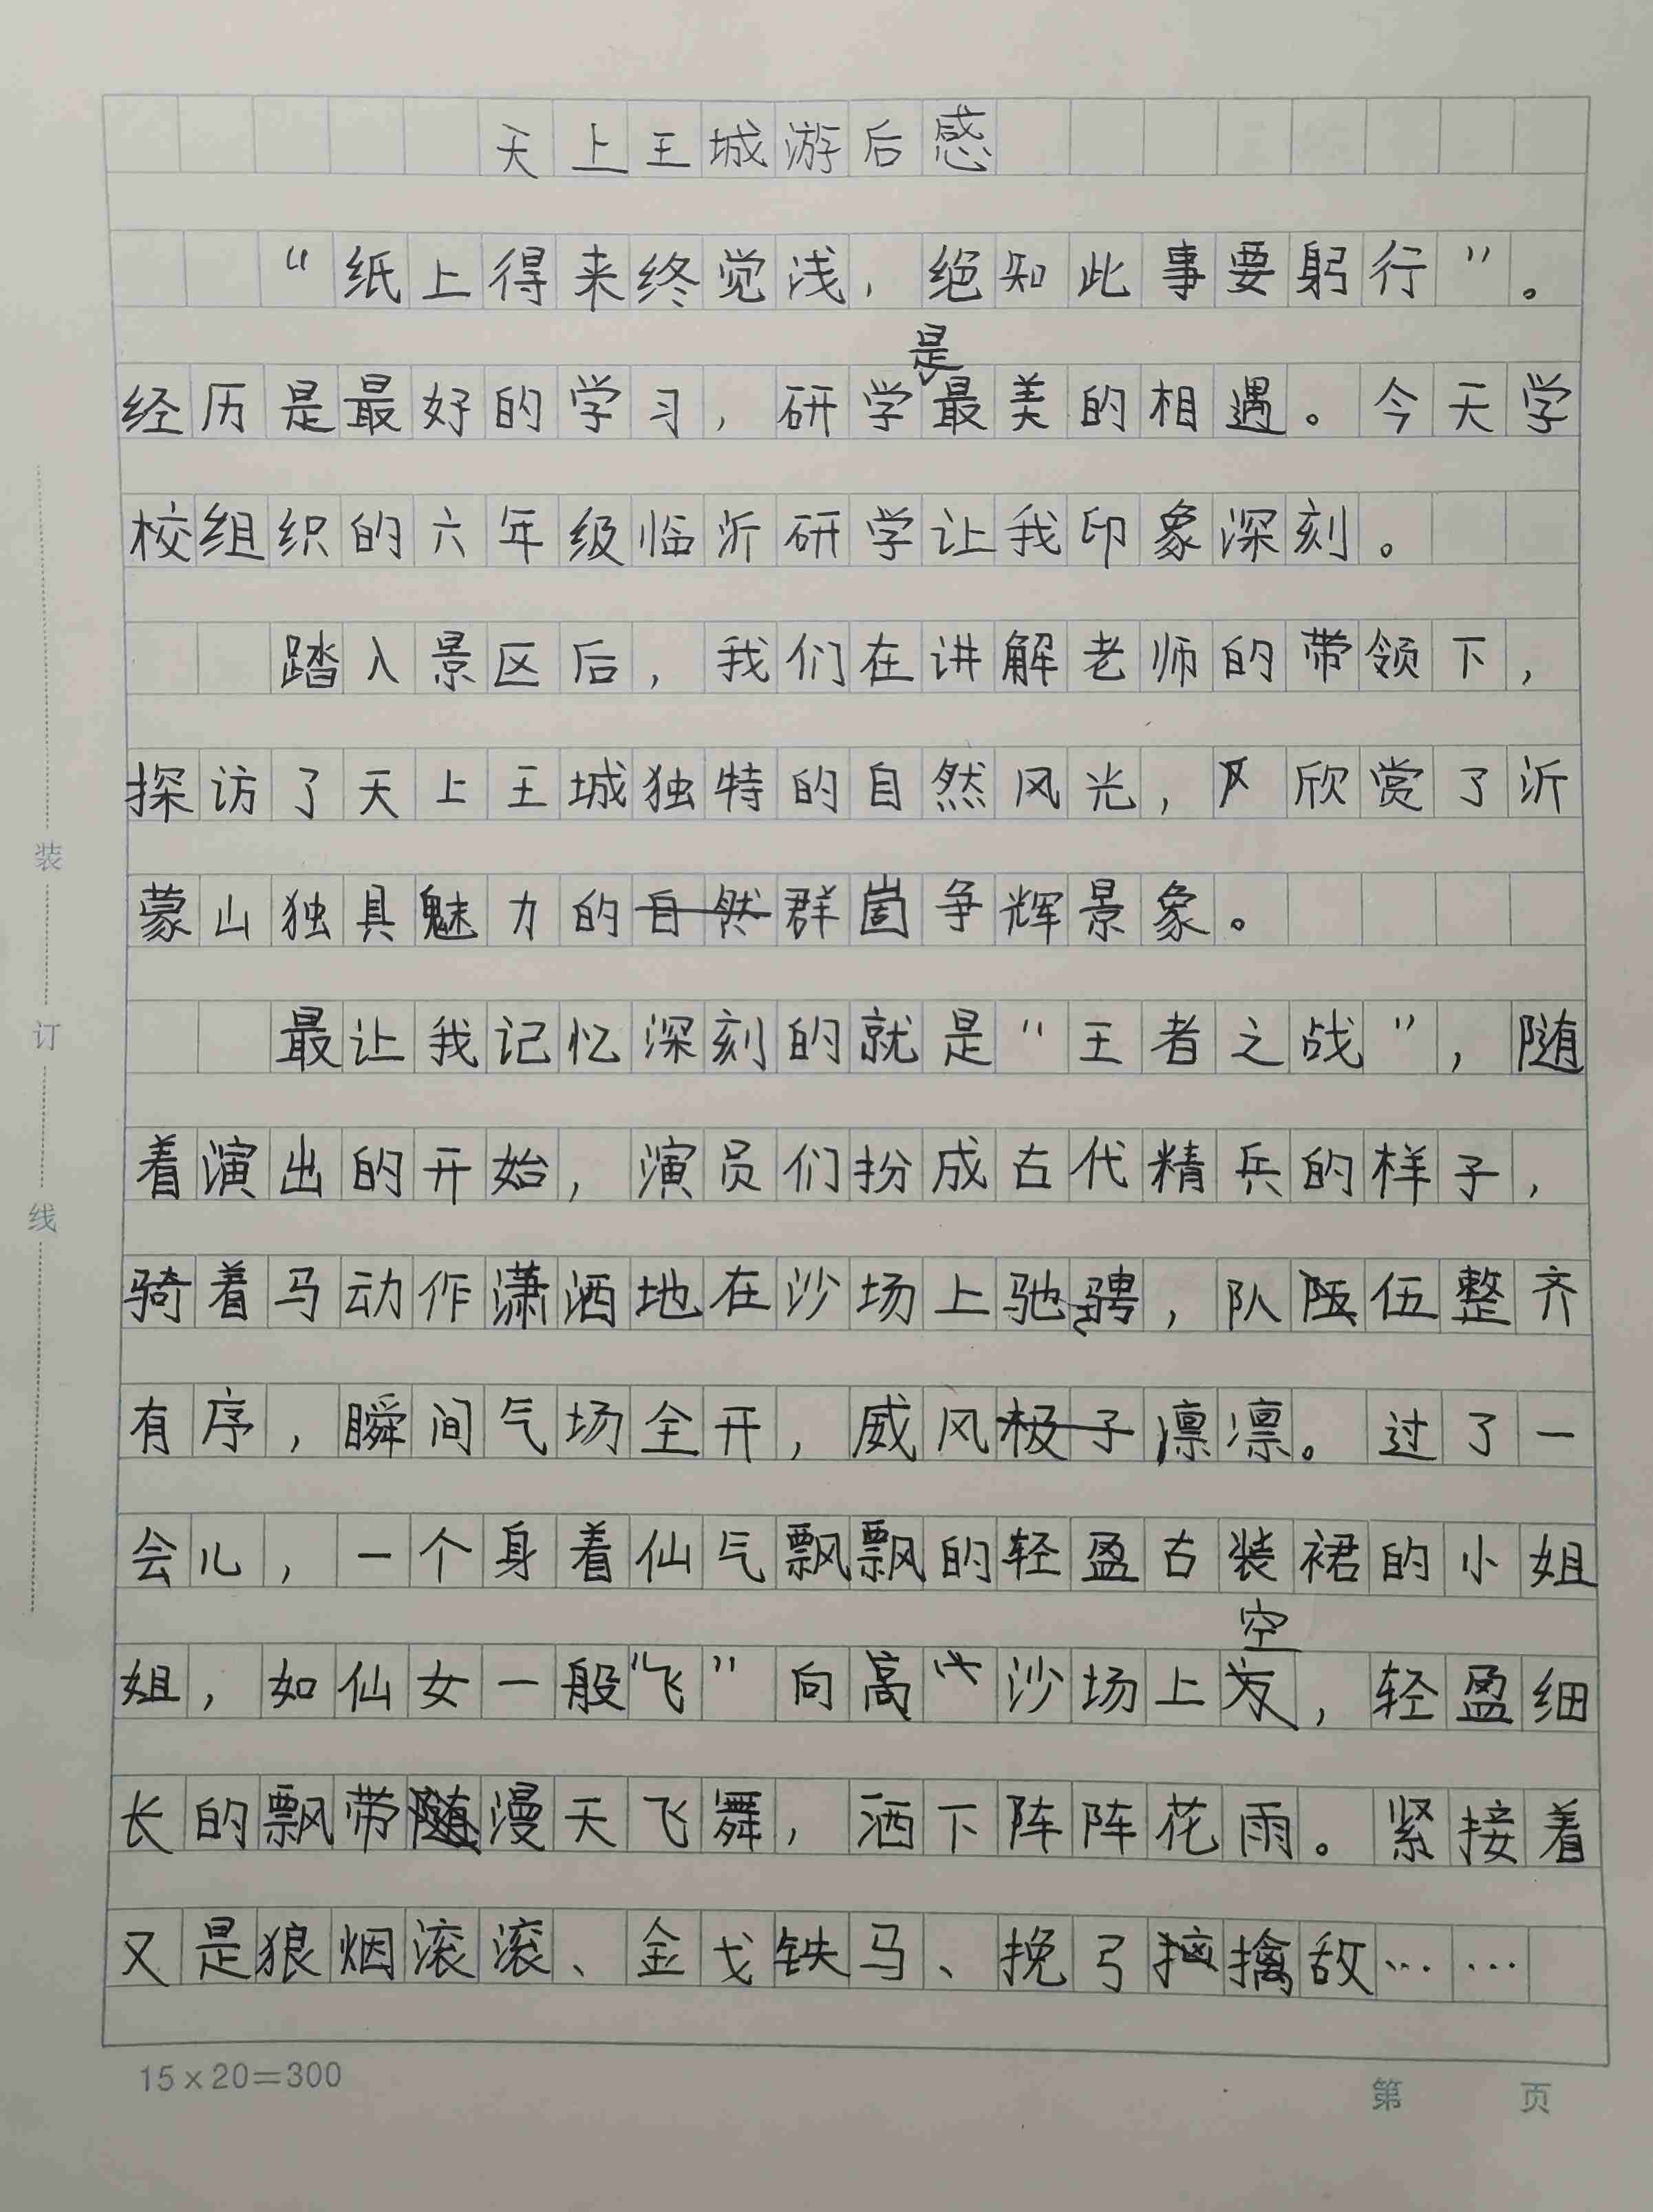 天上王城游后感
“纸上得来终觉浅，绝知此事要躬行”。
经历是最好的学习，研学是最美的相遇。今天学
校组织的六年级临沂研学让我印象深刻。
踏入景区后，我们在讲解老师的带领下，
探访了天上王城独特的自然风光，欣赏了沂
蒙山独具魅力的群崮争辉景象。
最让我记忆深刻的就是“王者之战”，随
着演出的开始，演员们扮成古代精兵的样子，
骑着马动作潇洒地在沙场上驰骋，队伍整齐
有序，瞬间气场全开，威风凛凛。过了一
会儿，一个身着仙气飘飘的轻盈古装裙的小姐
姐，如仙女一般“飞”向高沙场上空，轻盈细
长的飘带漫天飞舞，洒下阵阵花雨。紧接着
又是狼烟滚滚、金戈铁马、挽弓擒敌……
15×20=300
第 页
装
订
线